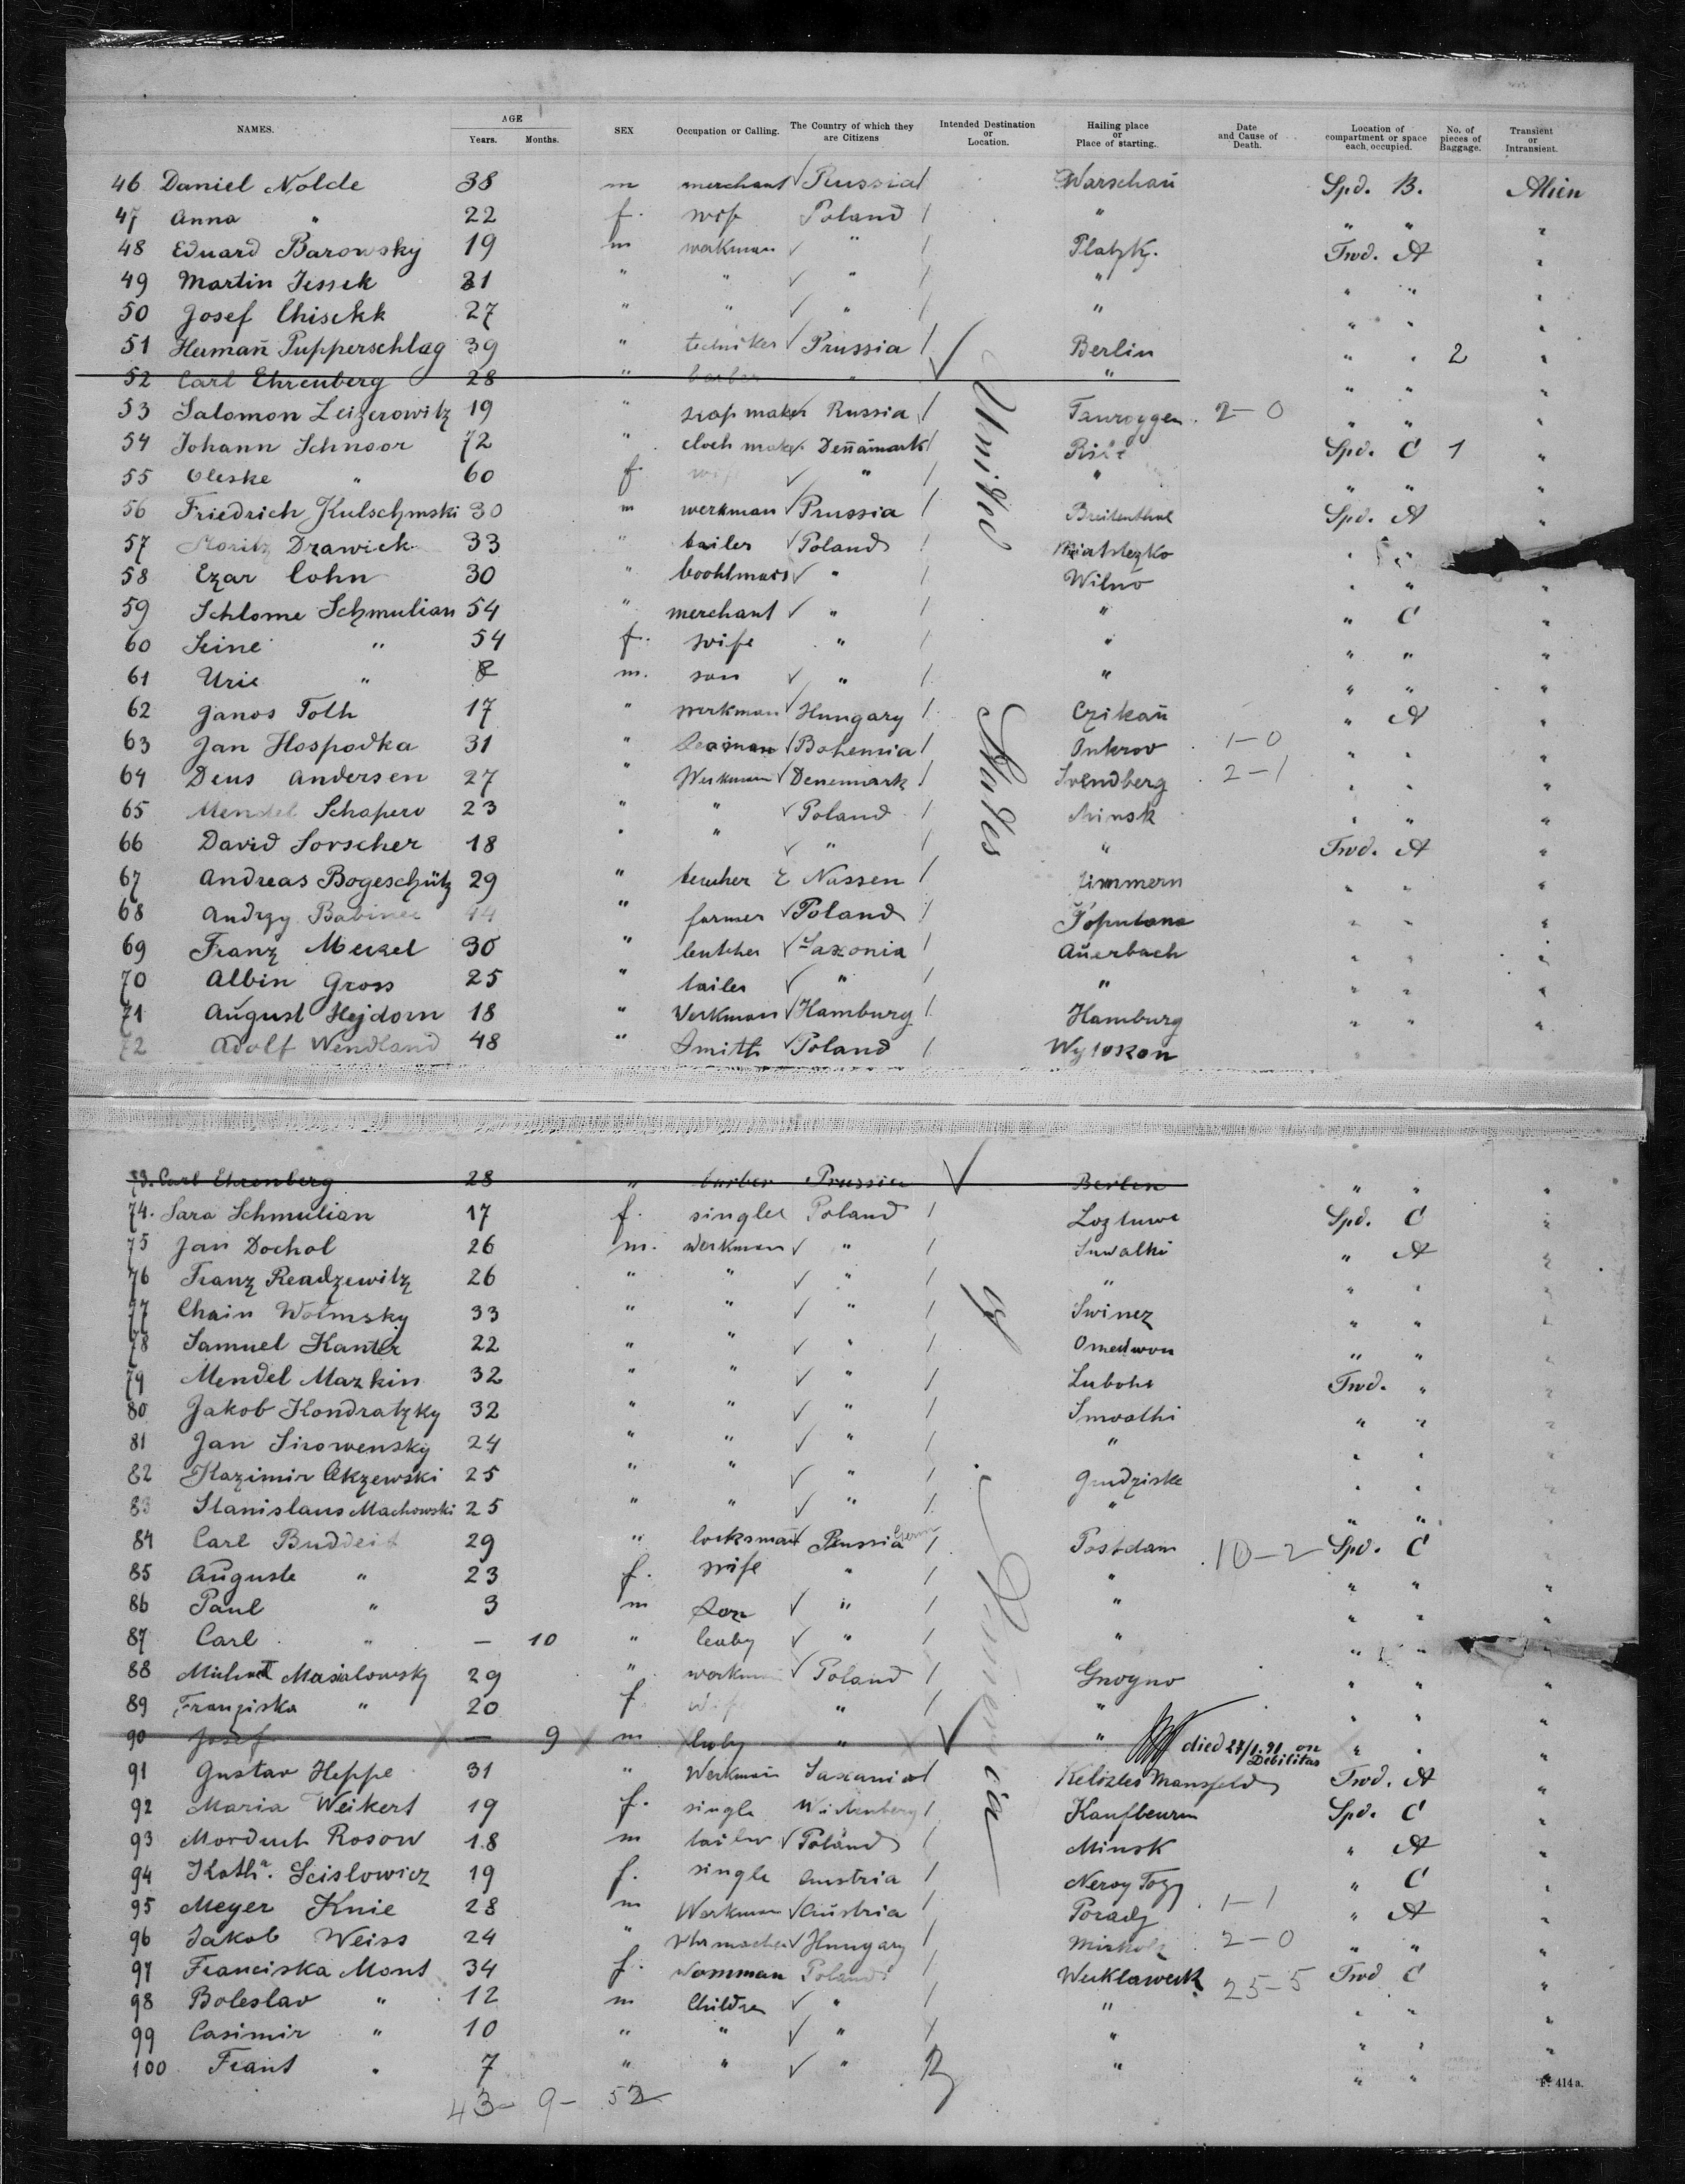 NAMES. AGE Years. Months. SEX Occupation or Calling. The Country of which they are Citizens Intended Destination or Location. Hailing place or Place of starting. Date and Cause of Death. Location of compartment or space each, occupied. No. of pieces of Baggage. Transient or Intransient.
46 Daniel Nolde 38 m merchant Russia Warschau Spd. B. Alien
47 Anna " 22 f. wife Poland " " " "
48 Eduard Barowsky 19 m workman " Platzk. Fwd. A "
49 Martin Jessek 31 " " " " " " "
50 Josef Chisekk 27 " " " " " " "
51 Hermañ Pupperschlag 39 " techniker Prussia Berlin " " 2 "
52 Carl Ehrenberg 28 " barber " " " " "
53 Salomon Leizerowitz 19 " soap maker Russia Tauroggen 2-0 " " "
54 Johann Schnoor 72 " cloch maker Deñamark Spd. C 1 "
55 Oleske " 60 f. wife " " " " "
56 Friedrich Kulschmski 30 m werkman Prussia Breitenthal Spd. A "
57 Moritz Drawick 33 " tailer Poland
58 Ezar Cohn 30 " " Wilno " " "
59 Schlome Schmulian 54 " merchant " " " C "
60 Seine " 54 f. wife " " " " "
61 Urie " 8 m. son " " " " "
62 Janos Toth 17 " werkman Hungary Czikau " A "
63 Jan Hospodka 31 " Bohemia Onkrov 1-0 " " "
64 Deus Andersen 27 " Werkman Denemark Svendberg 2-1 " " "
65 Mendel Schapero 23 " " Poland Minsk " " "
66 David Sorscher 18 " " " " Fwd. A "
67 Andreas Bogeschütz 29 " teacher Nassen Zimmern " " "
68 Andrzy Babinec 44 " farmer Poland Topulana " " "
69 Franz Merkel 30 " butcher Saxonia Auerbach " " "
70 Albin Gross 25 " tailer " " " " "
71 August Hejdorn 18 " Werkman Hamburg Hamburg " " "
72 Adolf Wendland 48 " Smith Poland
United States of America
73. Carl Ehrenberg 28 " barber Prussia Berlin " " "
74. Sara Schmulian 17 f. singlee Poland Spd. C "
75 Jan Dochol 26 m. werkman " Suwalki " A "
76 Franz Readzewitz 26 " " " " " " "
77 Chain Wolmsky 33 " " " Swinez " " "
78 Samuel Kanter 22 " " " " " "
79 Mendel Mazkin 32 " " " Fwd. " "
80 Jakob Kondratzky 32 " " " Suwalki " " "
81 Jan Sirowensky 24 " " " " " " "
82 Kazimir Ckzewski 25 " " " Grudziske " " "
83 Stanislaus Machowski 25 " " " " " " "
84 Carl Buddeit 29 " locksmañ Prussia Germ Postdam 10-2 Spd. C
85 Auguste " 23 f. wife " " " " "
86 Paul " 3 m Son " " " " "
87 Carl " — 10 " baby " " " "
88 Michael Masialowsky 29 " workman Poland Gnogno " " "
89 Franziska " 20 f wife " " " " "
90 Josef — 9 m baby " " died 27/1.91 on Debilitas " " "
91 Gustav Heppe 31 " Werkmañ Saxania Mansfeld Fwd. A "
92 Maria Weikert 19 f. single Wirtenberg Kaufbeurn Spd. C "
93 Morduch Rosow 18 m tailer Poland Minsk " A "
94 Katha. Scislowicz 19 f. single Austria " C "
95 Meyer Knie 28 m Werkman Austria Poradz 1-1 " A "
96 Jakob Weiss 24 " Uhrmacher Hungary Miskolz 2-0 " " "
97 Franciska Mont 34 f. Womman Poland Werklaweck 25-5 Fwd C "
98 Boleslav " 12 m Children " " " " "
99 Casimir " 10 " " " " " " "
100 Frant " 7 " " " " " " "
F. 414a.
43- 9- 52